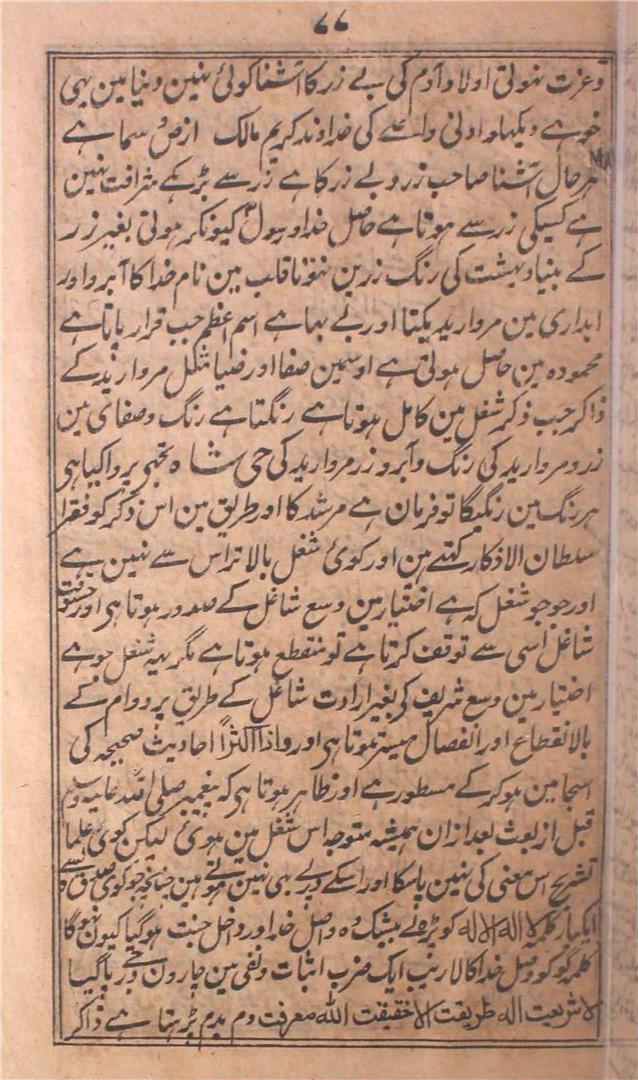 ۷۷
و عزت نہوتی اولاد آدم کی بے زر کا آشنا کوئی نہین دنیا مین یہی
خو ہے دیکھا و ادنی و اعلے کی خداوند کریم مالک ارض و سما ہے
ہر حال آشنا صاحب زر و بے زر کا ہے زر سے بڑہکے شرافت نہین
ہے کسیکی زر سے ہوتا ہے حاصل خدا و رسول کیونکر ہوتی بغیر زر
کے بنیاد بہشت کی رنگ زرین نقرۂ قالب مین نام خدا کا آبرو اور
ابداری مین مروارید یکتا اور بے بہا ہے اسم اعظم جب قرار پاتا ہے
محمودہ مین حاصل ہوتی ہے اوسمین صفا اور ضیا شکل مروارید کے
ذاکر جب ذکر شغل مین کامل ہوتا ہے رنگتا ہے رنگ و صفای مین
زر و مروارید کی رنگ و آبرو زر مروارید کی حی شاہ تجہی پروا کیا ہی
ہر رنگ مین رنگیگا تو فرمان ہے مرشد کا اور طریق مین اس ذکر کو فقرا
سلطان الاذکار کہتے ہین اور کوئی شغل بالاتر اس سے نہین ہے
اور جو جو شغل کہ ہے اختیار مین وسع شاغل کے صدور ہوتا ہی اور جسوقت
شاغل اسی سے توقف کرتا ہے تو منقطع ہوتا ہے مگر یہہ شغل جو ہے
اختیار مین وسع شریف کو بغیر ارادت شاغل کے طریق پر دوام کے
بالانقطاع اور انفصال میستر ہوتا ہی اور و اذا اکثراً احادیث صحیحہ کی
اسجا مین ہو کر کے مسطور ہے اور ظاہر ہوتا ہی کہ پیغمبر صلی اللہ علیہ وسلم
قبل از بعث بعد ازان ہمیشہ متوجہ اس شغل مین ہوئی لیکن کوئی علما
تشریح اس معنی کی نہین پاسکا اور اسکے درپے بہی نہین ہوتے ہین چنانچہ جو کوئی صدق سے
ایکبار کلمہ لا الہ الا اللہ کو پڑہے بیشک وہ واصل خدا اور داخل جنت ہو گیا کیون نہو گا
کلمہ گو کو وصل خدا کا لاریب ایک ضرب اثبات و نفی مین چارون درجے پا گیا
لا شریعت الہ طریقت الا حقیقت اللہ معرفت دم بدم پڑہتا ہے ذاکر